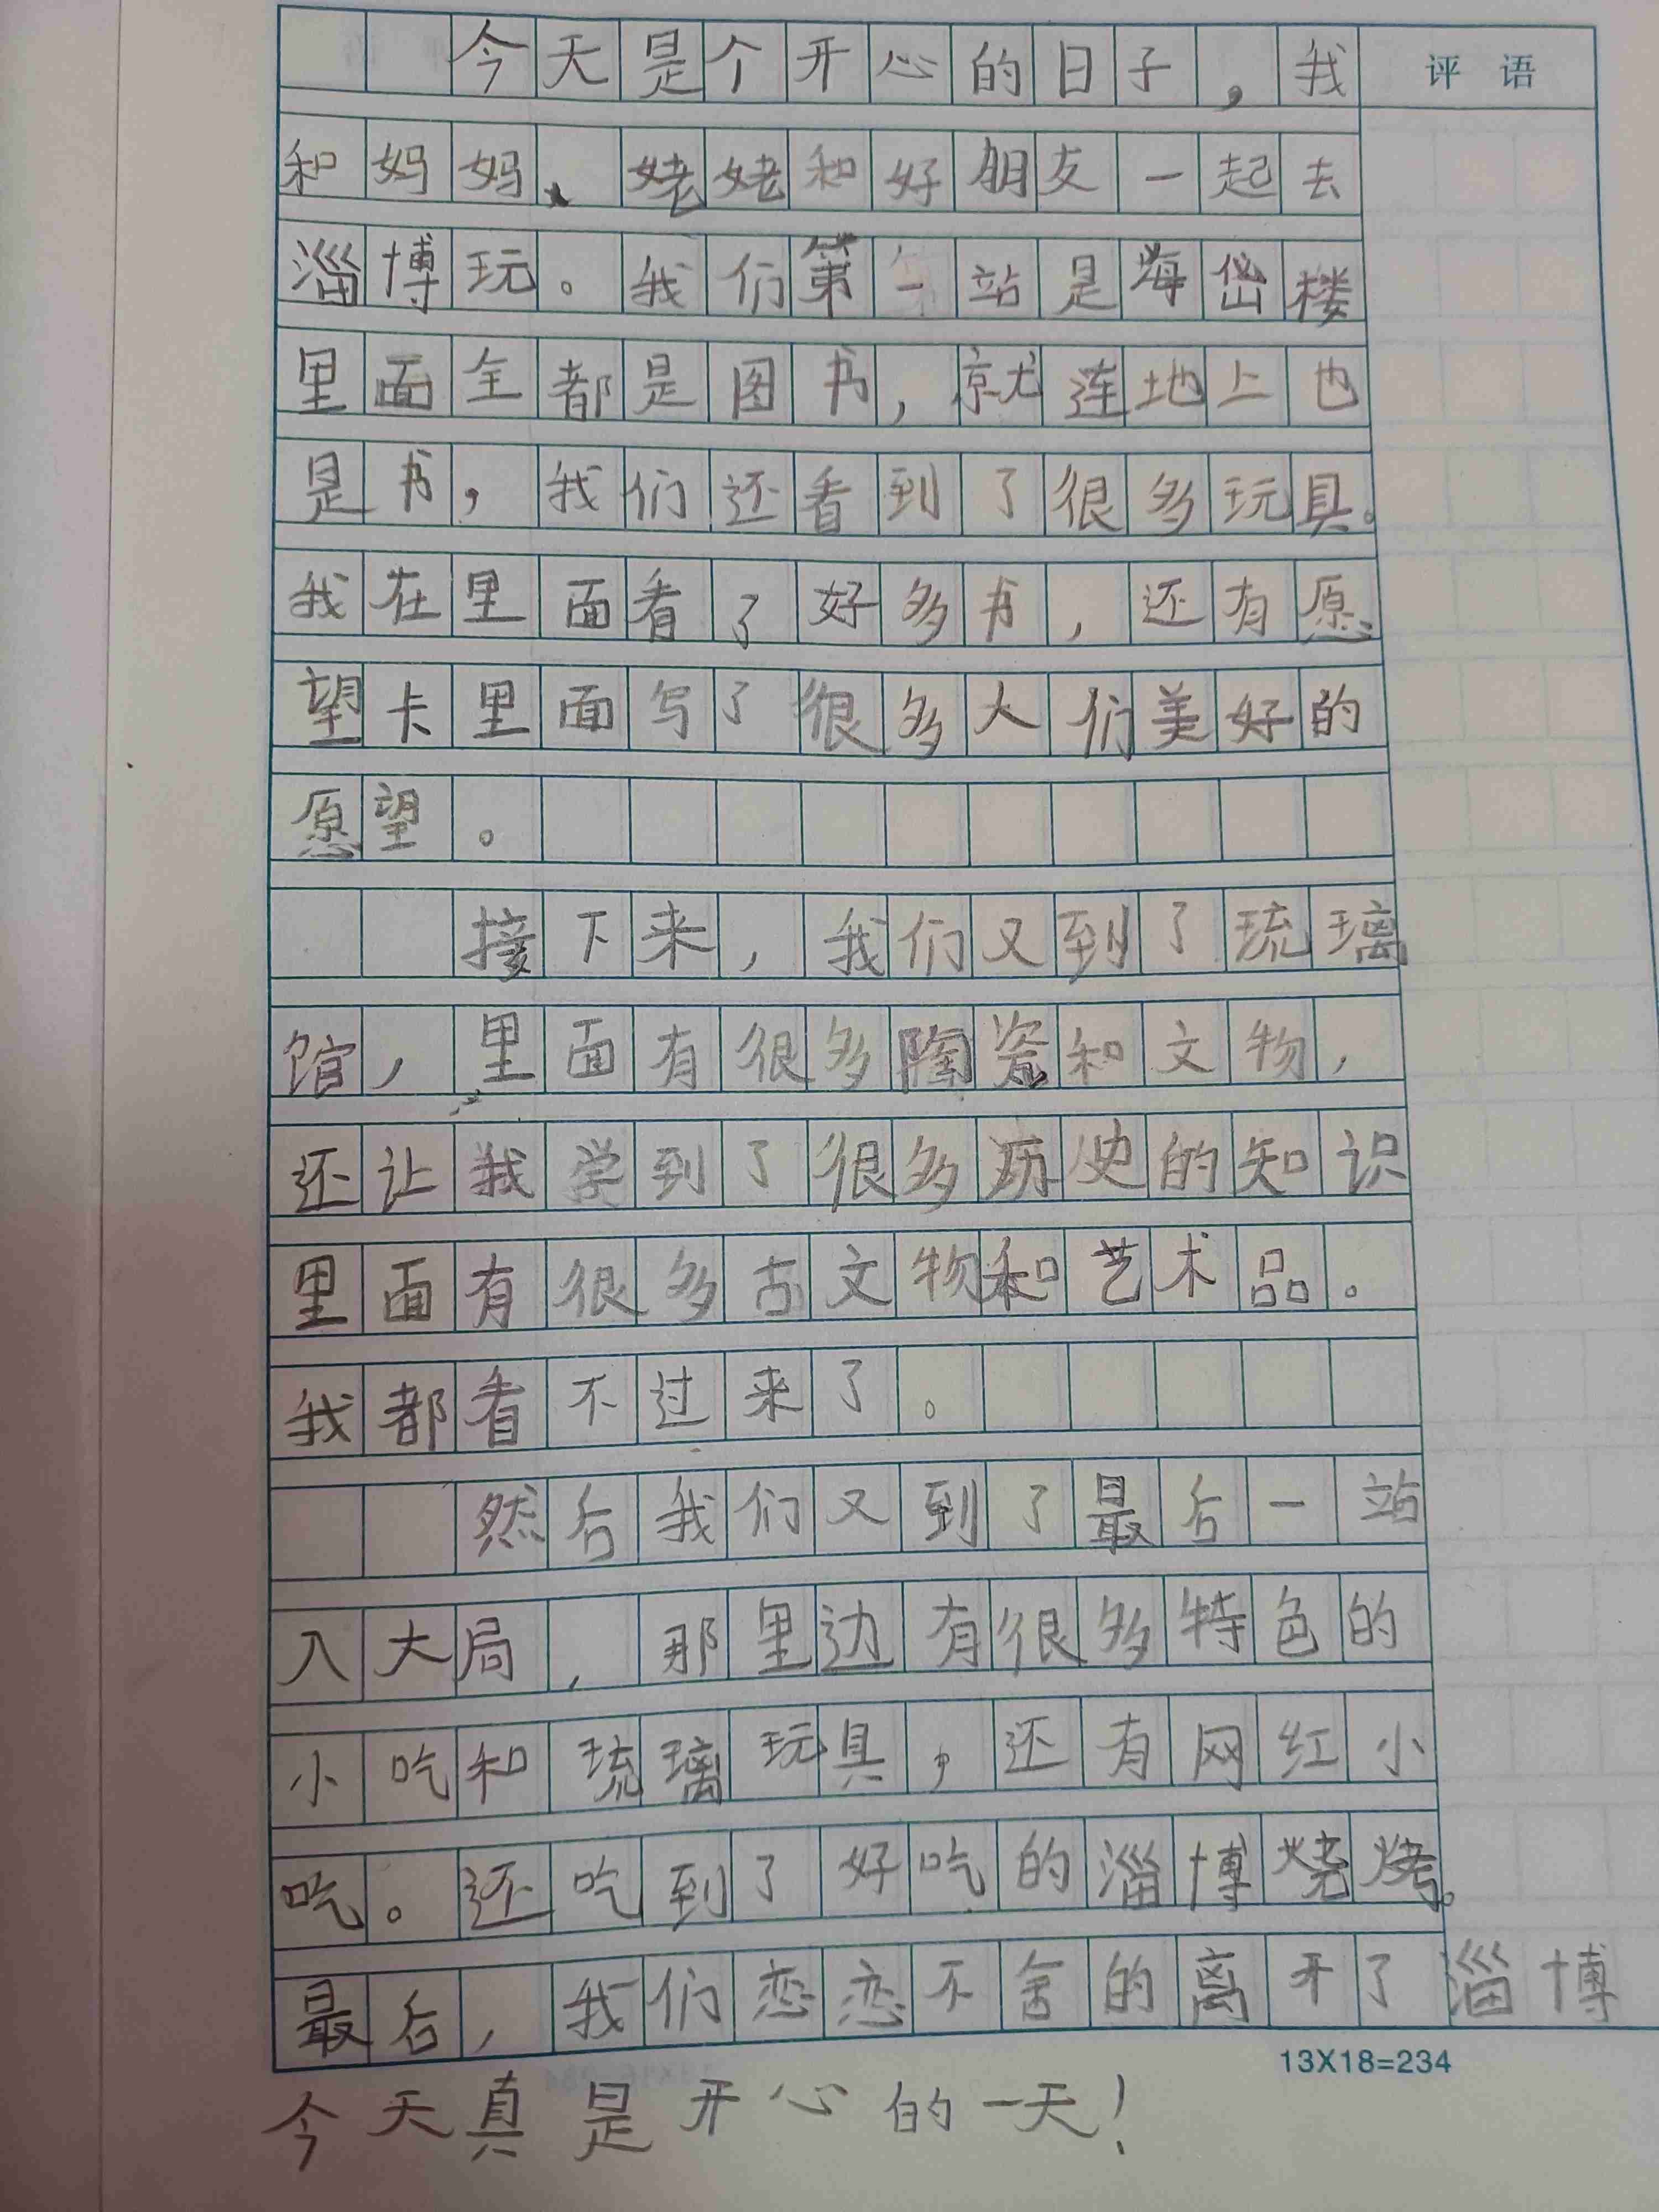 今天是个开心的日子，我
评语
和妈妈、姥姥和好朋友一起去
淄博玩。我们第一站是海岱楼
里面全都是图书，就连地上也
是书，我们还看到了很多玩具。
我在里面看了好多书，还有愿
望卡里面写了很多人们美好的
愿望。
接下来，我们又到了琉璃
馆，里面有很多陶瓷和文物，
还让我学到了很多历史的知识
里面有很多古文物和艺术品。
我都看不过来了。
然后我们又到了最后一站
八大局，那里边有很多特色的
小吃和琉璃玩具，还有网红小
吃。还吃到了好吃的淄博烧烤。
最后，我们恋恋不舍的离开了淄博
13X18=234
今天真是开心的一天！